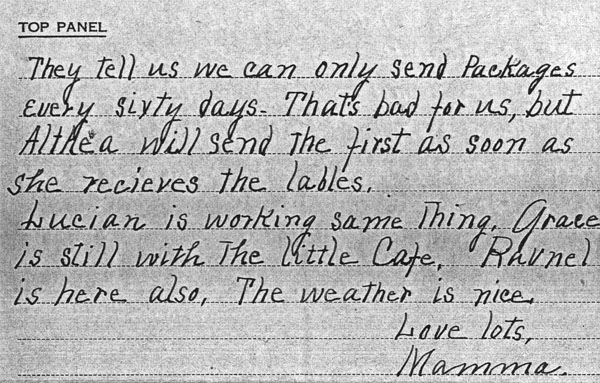 TOP PANEL
They tell us we can only send Packages
every sixty days. That's bad for us, but
Althea will send The first as soon as
she recieves the lables.
Lucian is working same Thing. Grace
is still with The little Cafe. Ravnel
is here also. The weather is nice.
Love lots,
Mamma.